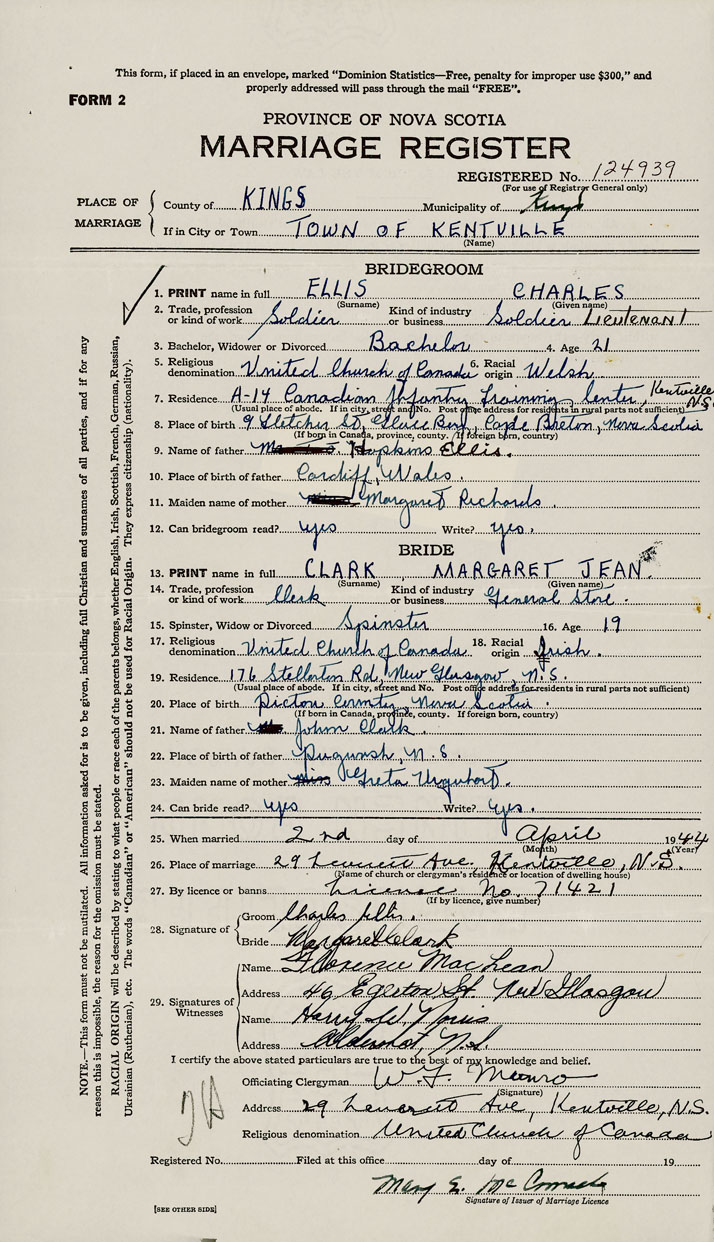 This form, if placed in an envelope, marked "Dominion Statistics—Free, penalty for improper use $300," and
properly addressed will pass through the mail "FREE".
FORM 2
PROVINCE OF NOVA SCOTIA
MARRIAGE REGISTER
REGISTERED No. 124939
(For use of Registrar General only)
PLACE OF MARRIAGE
County of KINGS Municipality of Kings
If in City or Town TOWN OF KENTVILLE
(Name)
BRIDEGROOM
1. PRINT name in full ELLIS CHARLES
(Surname) (Given name)
2. Trade, profession or kind of work Soldier Kind of industry or business Soldier LIEUTENANT
3. Bachelor, Widower or Divorced Bachelor 4. Age 21
5. Religious denomination United Church of Canada 6. Racial origin Welsh
7. Residence A-14 Canadian Infantry Training Center, Kentville N.S.
(Usual place of abode. If in city, street and No. Post office address for residents in rural parts not sufficient)
8. Place of birth 9 Fletcher St, Glace Bay, Cape Breton, Nova Scotia
(If born in Canada, province, county. If foreign born, country)
9. Name of father Hopkins Ellis.
10. Place of birth of father Cardiff, Wales.
11. Maiden name of mother Margaret Richards.
12. Can bridegroom read? yes Write? yes.
BRIDE
13. PRINT name in full CLARK MARGARET JEAN.
(Surname) (Given name)
14. Trade, profession or kind of work Clerk Kind of industry or business General Store.
15. Spinster, Widow or Divorced Spinster 16. Age 19
17. Religious denomination United Church of Canada 18. Racial origin Irish.
19. Residence 176 Stellarton Rd, New Glasgow, N.S.
(Usual place of abode. If in city, street and No. Post office address for residents in rural parts not sufficient)
20. Place of birth Pictou County, Nova Scotia.
(If born in Canada, province, county. If foreign born, country)
21. Name of father John Clark.
22. Place of birth of father Pugwash, N.S.
23. Maiden name of mother Miss Greta Urquhart.
24. Can bride read? yes Write? yes.
25. When married 2nd day of April 1944
(Month) (Year)
26. Place of marriage 29 Ave. Kentville, N.S.
(Name of church or clergyman's residence or location of dwelling house)
27. By licence or banns License No. 71421
(If by licence, give number)
28. Signature of
Groom Charles Ellis.
Bride Margaret Clark
29. Signatures of Witnesses
Name Florence MacLean
Address 46 Egerton St. New Glasgow
Name Harry W. Norris
Address Aldershot, N.S
I certify the above stated particulars are true to the best of my knowledge and belief.
Officiating Clergyman W. F. Munro
(Signature)
Address 29 Ave, Kentville, N.S.
Religious denomination United Church of Canada
Registered No. Filed at this office day of 19
Mary E.
Signature of Issuer of Marriage Licence
[SEE OTHER SIDE]
NOTE.—This form must not be mutilated. All information asked for is to be given, including full Christian and surnames of all parties, and if for any
reason this is impossible, the reason for the omission must be stated.
RACIAL ORIGIN will be described by stating to what people or race each of the parents belongs, whether English, Irish, Scottish, French, German, Russian,
Ukrainian (Ruthenian), etc. The words "Canadian" or "American" should not be used for Racial Origin. They express citizenship (nationality).